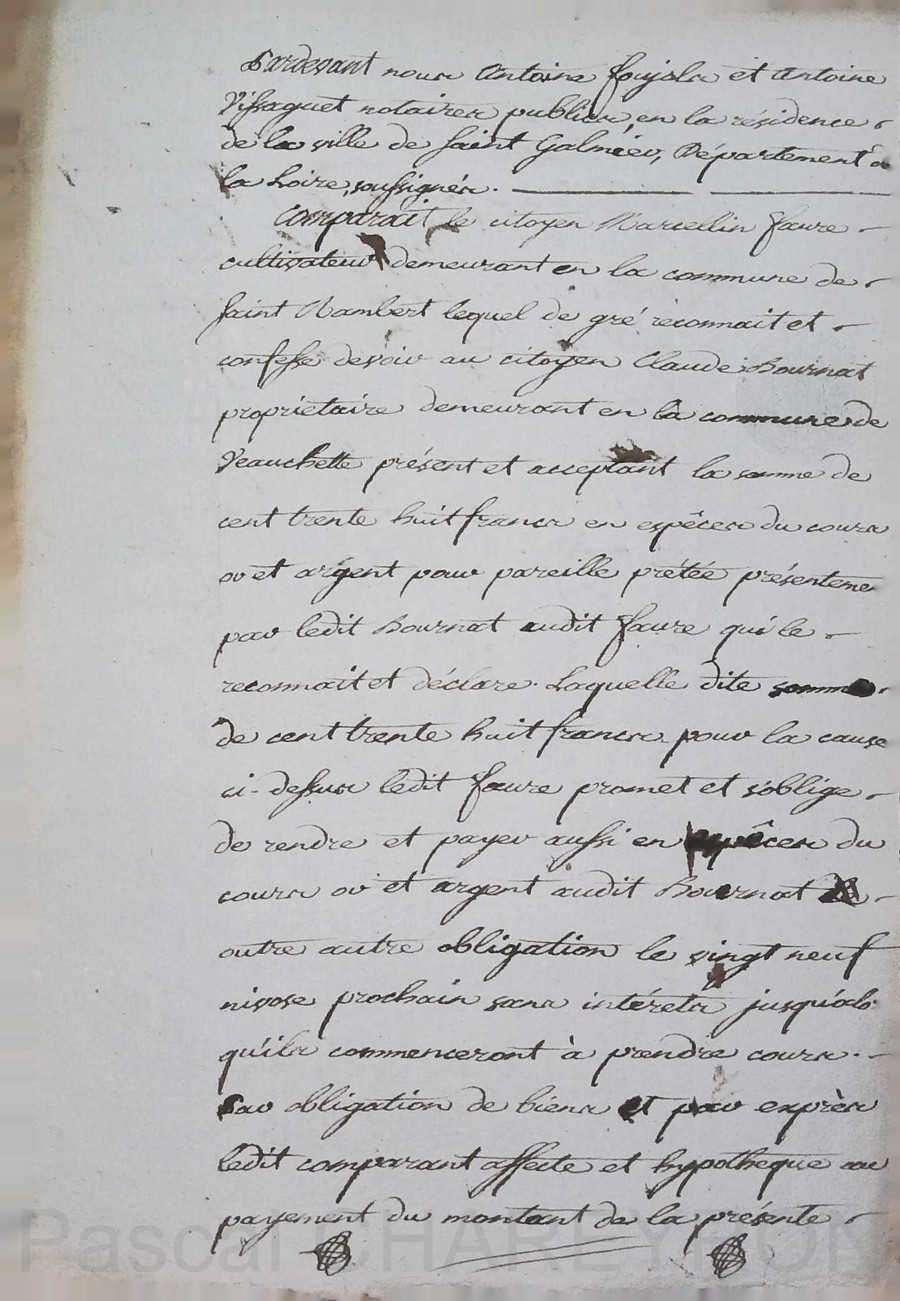 Pardevant nous Antoine foujols et Antoine
Vissaguet notaires publics en la résidence
de la ville de Saint Galmier, Département de
la Loire, soussignés.
Comparait le citoyen Marcellin faure
cultivateur demeurant en la commune de
Saint Rambert lequel de gré reconnait et
confesse devoir au citoyen Claude Bournat
proprietaire demeurant en la commune de
Veauchette présent et acceptant la somme de
cent trente huit francs en espêces du cours
or et argent pour pareille prétée présenteme
par ledit Bournat audit faure qui le
reconnait et déclare. Laquelle dite somme
de cent trente huit francs pour la cause
ci-dessus ledit faure promet et s'oblige
de rendre et payer aussi en espêces du
cours or et argent audit Bournat
outre autre obligation le vingt neuf
nivose prochain sans intérets jusqu'alo
qu'ils commenceront à prendre cours.
Par obligation de biens et par exprès
ledit comparant affecte et hypotheque au
payement du montant de la présente
Pascal CHAREYRON